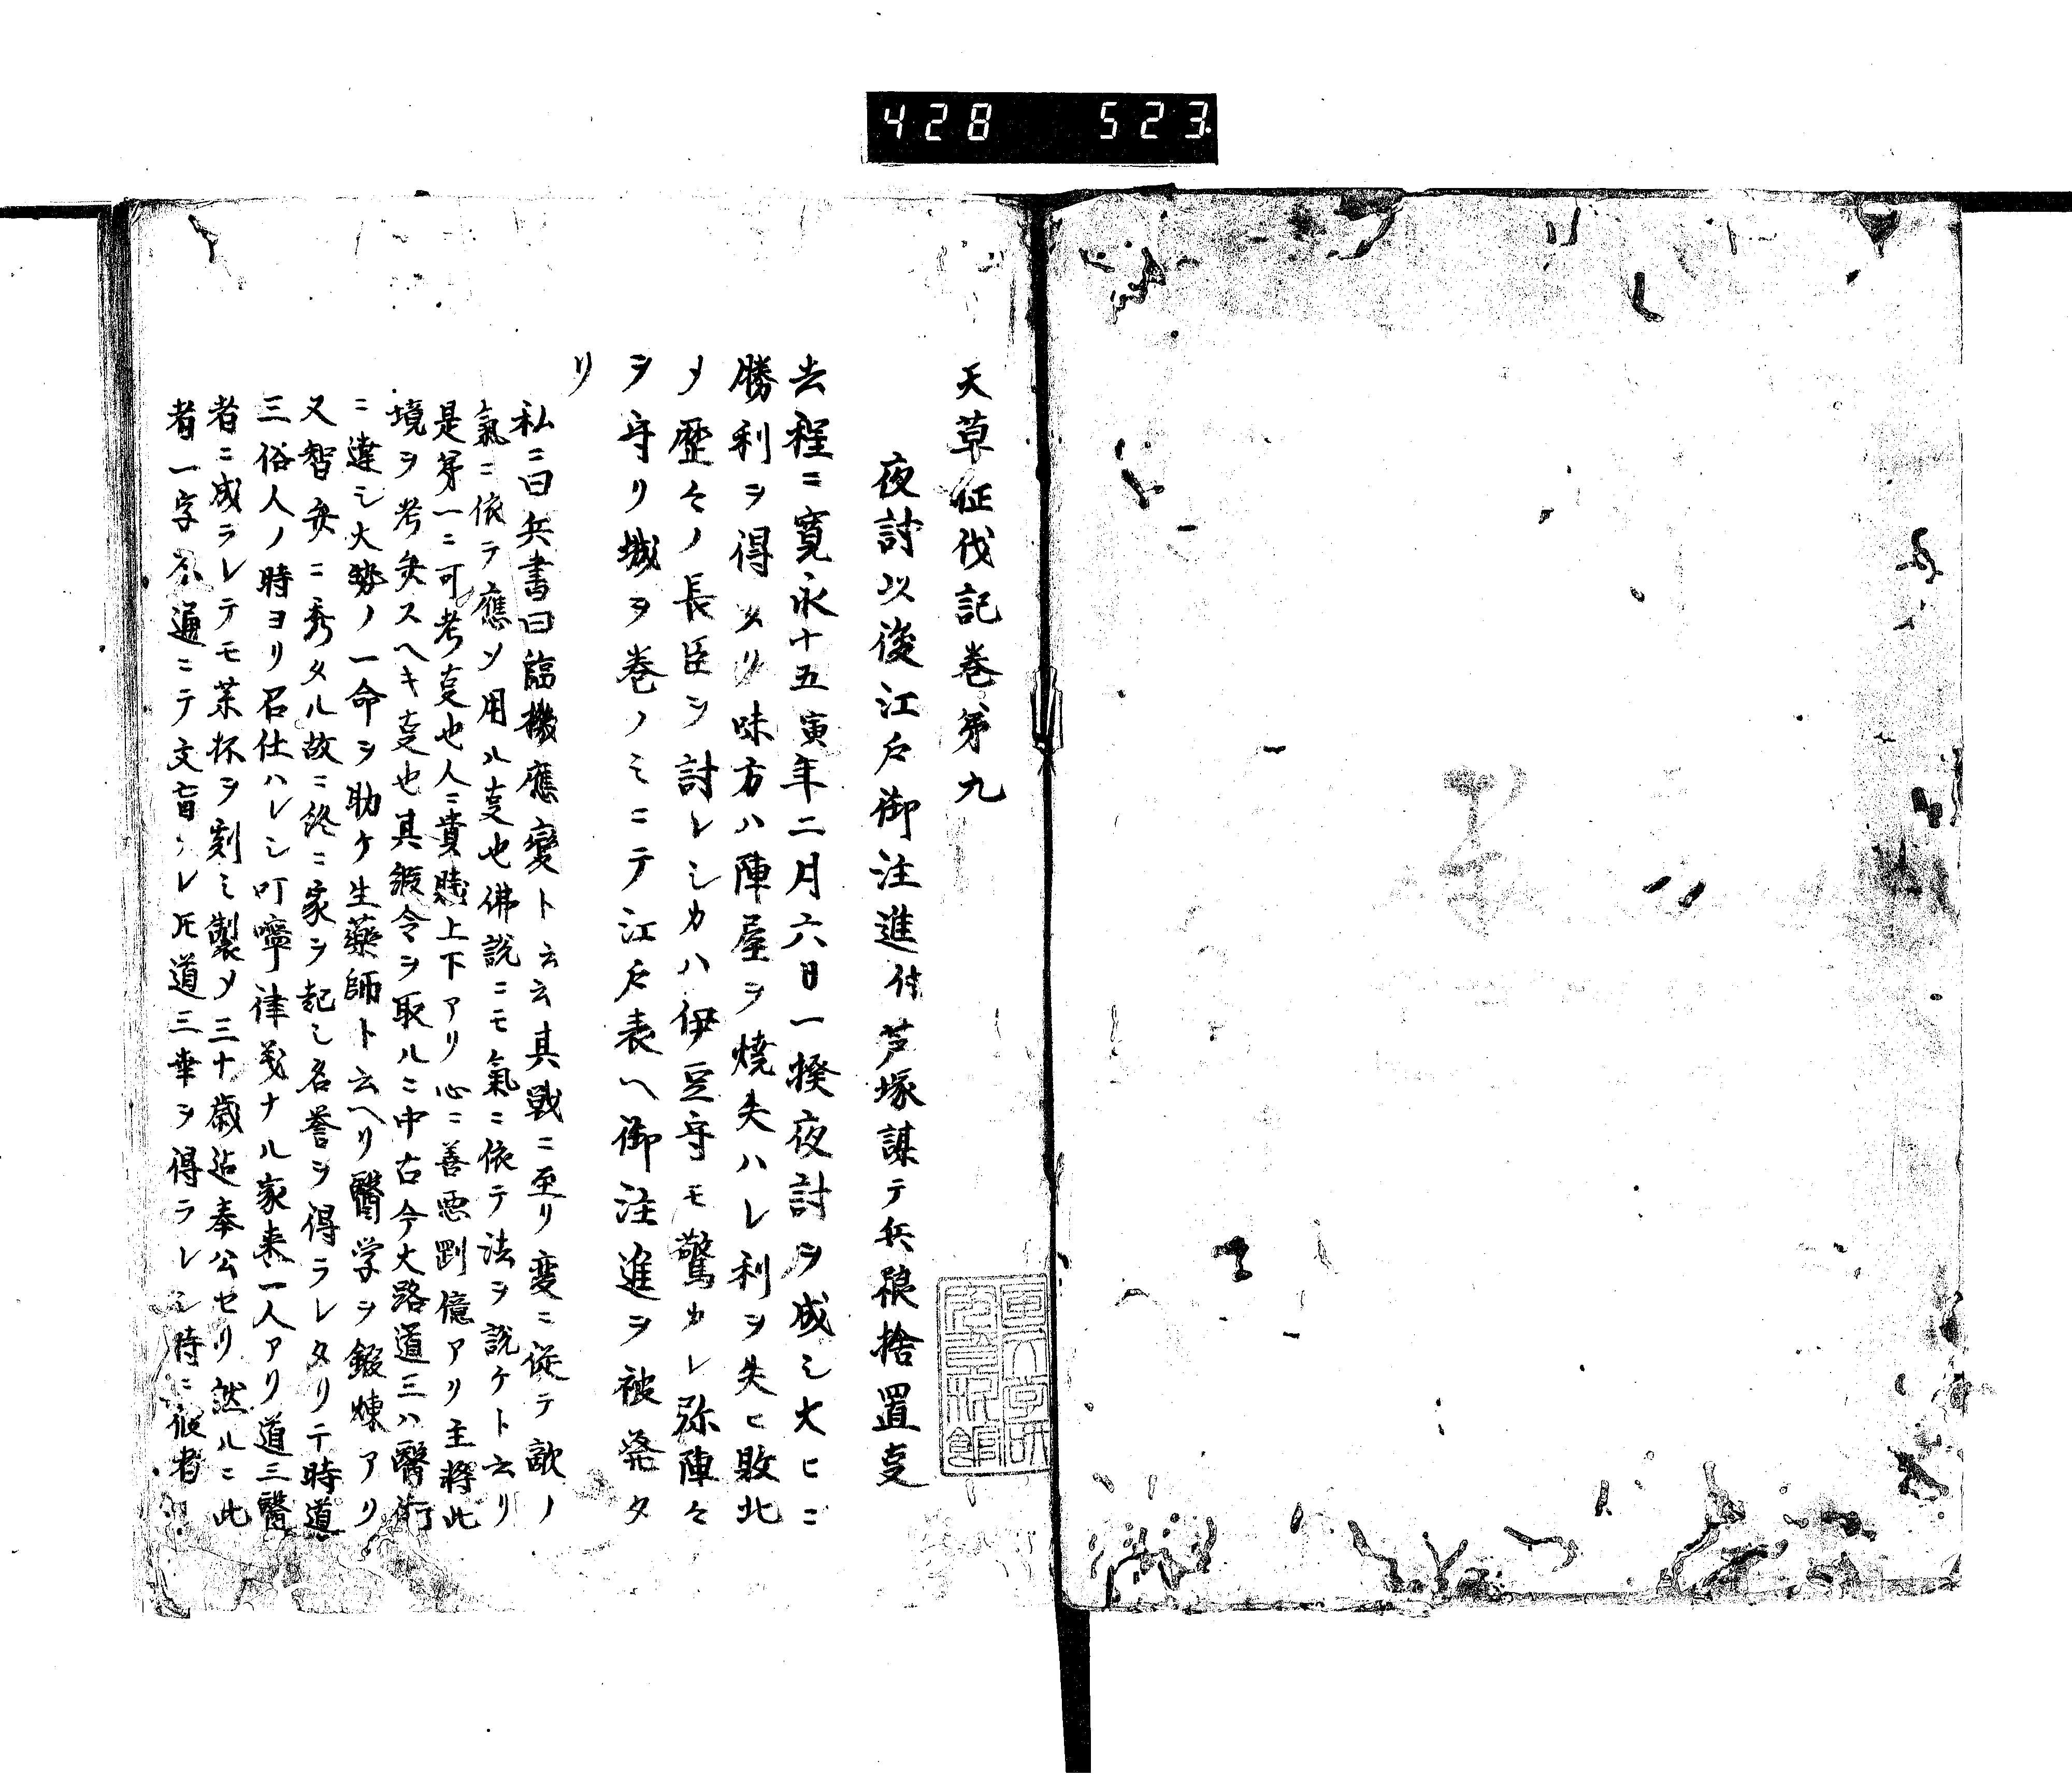 428 523
天草征伐記巻第九
夜討以後江戸御注進付芦塚謀テ兵粮捨置㕝
去程ニ寛永十五寅年二月六日一揆夜討ヲ成シ大ヒニ
勝利ヲ得タリ味方ハ陣屋ヲ焼失ハレ利ヲ失ヒ敗北
メ歴々ノ長臣シ討レシカハ伊豆守モ驚カレ弥陣々
ヲ守リ城ヲ巻ノミニテ江戸表ヘ御注進ヲ被発タ
リ
私ニ曰兵書曰臨機應變ト云云其戦ニ至リ変ニ従テ敵ノ
氣ニ依テ應ソ用ル㕝也佛説ニモ氣ニ依テ法ヲ説ケト云リ
是第一ニ可考㕝也人ニ貴賎上下アリ心ニ善悪剛憶アリ主将此
境ヲ考矣スヘキ㕝也其叚令ヲ取ルニ中古今大路道三ハ醫術
ニ達シ大勢ノ一命ヲ助ケ生藥師ト云ヘリ醫学ヲ鍛煉アリ
又智矣ニ秀タル故ニ終ニ家ヲ起シ名誉ヲ得ラレタリ于時道
三俗人ノ時ヨリ召仕ハレシ叮嚀律義ナル家来一人アリ道三醫
者ニ成ラレテモ茱杯ヲ刻ミ製メ三十歳迠奉公セリ然ルニ此
者一字不通ニテ文盲ナレ㐧道三幸ヲ得ラレシ時ニ彼者